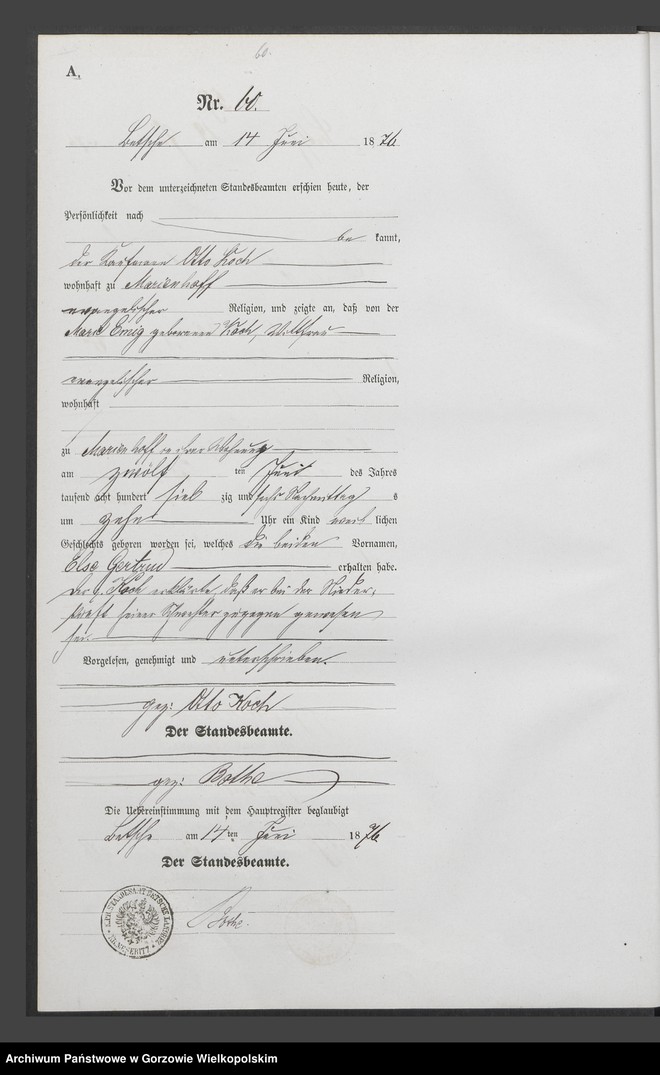 60.
A.
Nr. 60.
Betsche am 14 Juni 1876
Vor dem unterzeichneten Standesbeamten erschien heute, der
Persönlichkeit nach
be kannt,
der Kaufmann Otto Koch
wohnhaft zu Marienhoff
evangelischer Religion, und zeigte an, daß von der
Marie Emig geborenen Koch, Wittfrau
evangelischer Religion,
wohnhaft
zu Marienhoff in ihrer Wohnung
am zwölf ten Juni des Jahres
tausend acht hundert sieb zig und sechs Nachmittag s
um zehn Uhr ein Kind weib lichen
Geschlechts geboren worden sei, welches die beiden Vornamen,
Else Gertrud erhalten habe.
Der p. Koch erklärte, daß er bei der Nieder-
kunft seiner Schwester zugegen gewesen
sei.
Vorgelesen, genehmigt und unterschrieben.
gez: Otto Koch
Der Standesbeamte.
gez: Bothe
Die Uebereinstimmung mit dem Hauptregister beglaubigt
Betsche am 14ten Juni 1876
Der Standesbeamte.
Bothe.
Archiwum Państwowe w Gorzowie Wielkopolskim